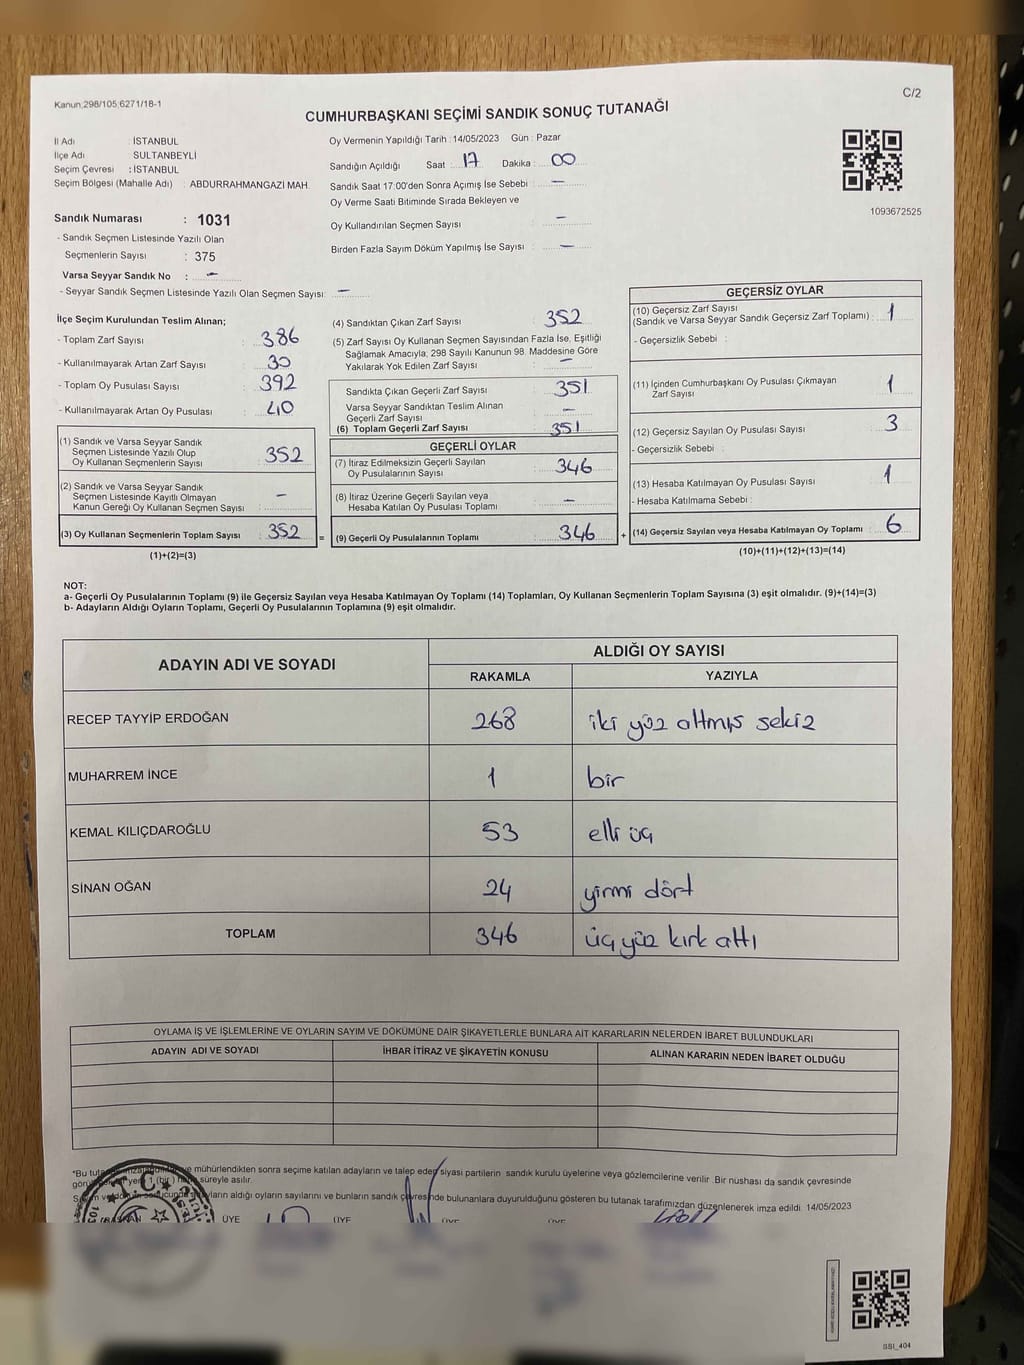 Kanun;298/105;6271/18-1
C/2
CUMHURBAŞKANI SEÇİMİ SANDIK SONUÇ TUTANAĞI
İl Adı : İSTANBUL
İlçe Adı SULTANBEYLİ
Seçim Çevresi : İSTANBUL
Seçim Bölgesi (Mahalle Adı) : ABDURRAHMANGAZİ MAH.
Oy Vermenin Yapıldığı Tarih : 14/05/2023 Gün : Pazar
Sandığın Açıldığı Saat : 17 Dakika : 00
Sandık Saat 17:00'den Sonra Açımış İse Sebebi : —
Oy Verme Saati Bitiminde Sırada Bekleyen ve
Oy Kullandırılan Seçmen Sayısı : —
Birden Fazla Sayım Döküm Yapılmış İse Sayısı : —
1093672525
Sandık Numarası : 1031
- Sandık Seçmen Listesinde Yazılı Olan
Seçmenlerin Sayısı : 375
Varsa Seyyar Sandık No : —
- Seyyar Sandık Seçmen Listesinde Yazılı Olan Seçmen Sayısı: —
İlçe Seçim Kurulundan Teslim Alınan;
- Toplam Zarf Sayısı : 386
- Kullanılmayarak Artan Zarf Sayısı : 30
- Toplam Oy Pusulası Sayısı : 392
- Kullanılmayarak Artan Oy Pusulası : 40
(1) Sandık ve Varsa Seyyar Sandık
Seçmen Listesinde Yazılı Olup
Oy Kullanan Seçmenlerin Sayısı : 352
(2) Sandık ve Varsa Seyyar Sandık
Seçmen Listesinde Kayıtlı Olmayan
Kanun Gereği Oy Kullanan Seçmen Sayısı : —
(3) Oy Kullanan Seçmenlerin Toplam Sayısı : 352
(1)+(2)=(3)
(4) Sandıktan Çıkan Zarf Sayısı : 352
(5) Zarf Sayısı Oy Kullanan Seçmen Sayısından Fazla İse, Eşitliği
Sağlamak Amacıyla, 298 Sayılı Kanunun 98. Maddesine Göre
Yakılarak Yok Edilen Zarf Sayısı : —
Sandıkta Çıkan Geçerli Zarf Sayısı : 351
Varsa Seyyar Sandıktan Teslim Alınan
Geçerli Zarf Sayısı : —
(6) Toplam Geçerli Zarf Sayısı : 351
GEÇERLİ OYLAR
(7) İtiraz Edilmeksizin Geçerli Sayılan
Oy Pusulalarının Sayısı : 346
(8) İtiraz Üzerine Geçerli Sayılan veya
Hesaba Katılan Oy Pusulası Toplamı : —
= (9) Geçerli Oy Pusulalarının Toplamı : 346 +
GEÇERSİZ OYLAR
(10) Geçersiz Zarf Sayısı
(Sandık ve Varsa Seyyar Sandık Geçersiz Zarf Toplamı) : 1
- Geçersizlik Sebebi :
(11) İçinden Cumhurbaşkanı Oy Pusulası Çıkmayan
Zarf Sayısı : 1
(12) Geçersiz Sayılan Oy Pusulası Sayısı : 3
- Geçersizlik Sebebi :
(13) Hesaba Katılmayan Oy Pusulası Sayısı : 1
- Hesaba Katılmama Sebebi :
(14) Geçersiz Sayılan veya Hesaba Katılmayan Oy Toplamı : 6
(10)+(11)+(12)+(13)=(14)
NOT:
a- Geçerli Oy Pusulalarının Toplamı (9) ile Geçersiz Sayılan veya Hesaba Katılmayan Oy Toplamı (14) Toplamları, Oy Kullanan Seçmenlerin Toplam Sayısına (3) eşit olmalıdır. (9)+(14)=(3)
b- Adayların Aldığı Oyların Toplamı, Geçerli Oy Pusulalarının Toplamına (9) eşit olmalıdır.
ADAYIN ADI VE SOYADI
ALDIĞI OY SAYISI
RAKAMLA YAZIYLA
RECEP TAYYİP ERDOĞAN 268 iki yüz altmış sekiz
MUHARREM İNCE 1 bir
KEMAL KILIÇDAROĞLU 53 elli üç
SİNAN OĞAN 24 yirmi dört
TOPLAM 346 üç yüz kırk altı
OYLAMA İŞ VE İŞLEMLERİNE VE OYLARIN SAYIM VE DÖKÜMÜNE DAİR ŞİKAYETLERLE BUNLARA AİT KARARLARIN NELERDEN İBARET BULUNDUKLARI
ADAYIN ADI VE SOYADI İHBAR İTİRAZ VE ŞİKAYETİN KONUSU ALINAN KARARIN NEDEN İBARET OLDUĞU
*Bu mühürlendikten sonra seçime katılan adayların ve talep eden siyasi partilerin sandık kurulu üyelerine veya gözlemcilerine verilir. Bir nüshası da sandık çevresinde
süreyle asılır.
aldığı oyların sayılarını ve bunların sandık çevresinde bulunanlara duyurulduğunu gösteren bu tutanak tarafımızdan düzenlenerek imza edildi. 14/05/2023
BAŞKAN ÜYE ÜYE ÜYE ÜYE
T.C.
SSI_404